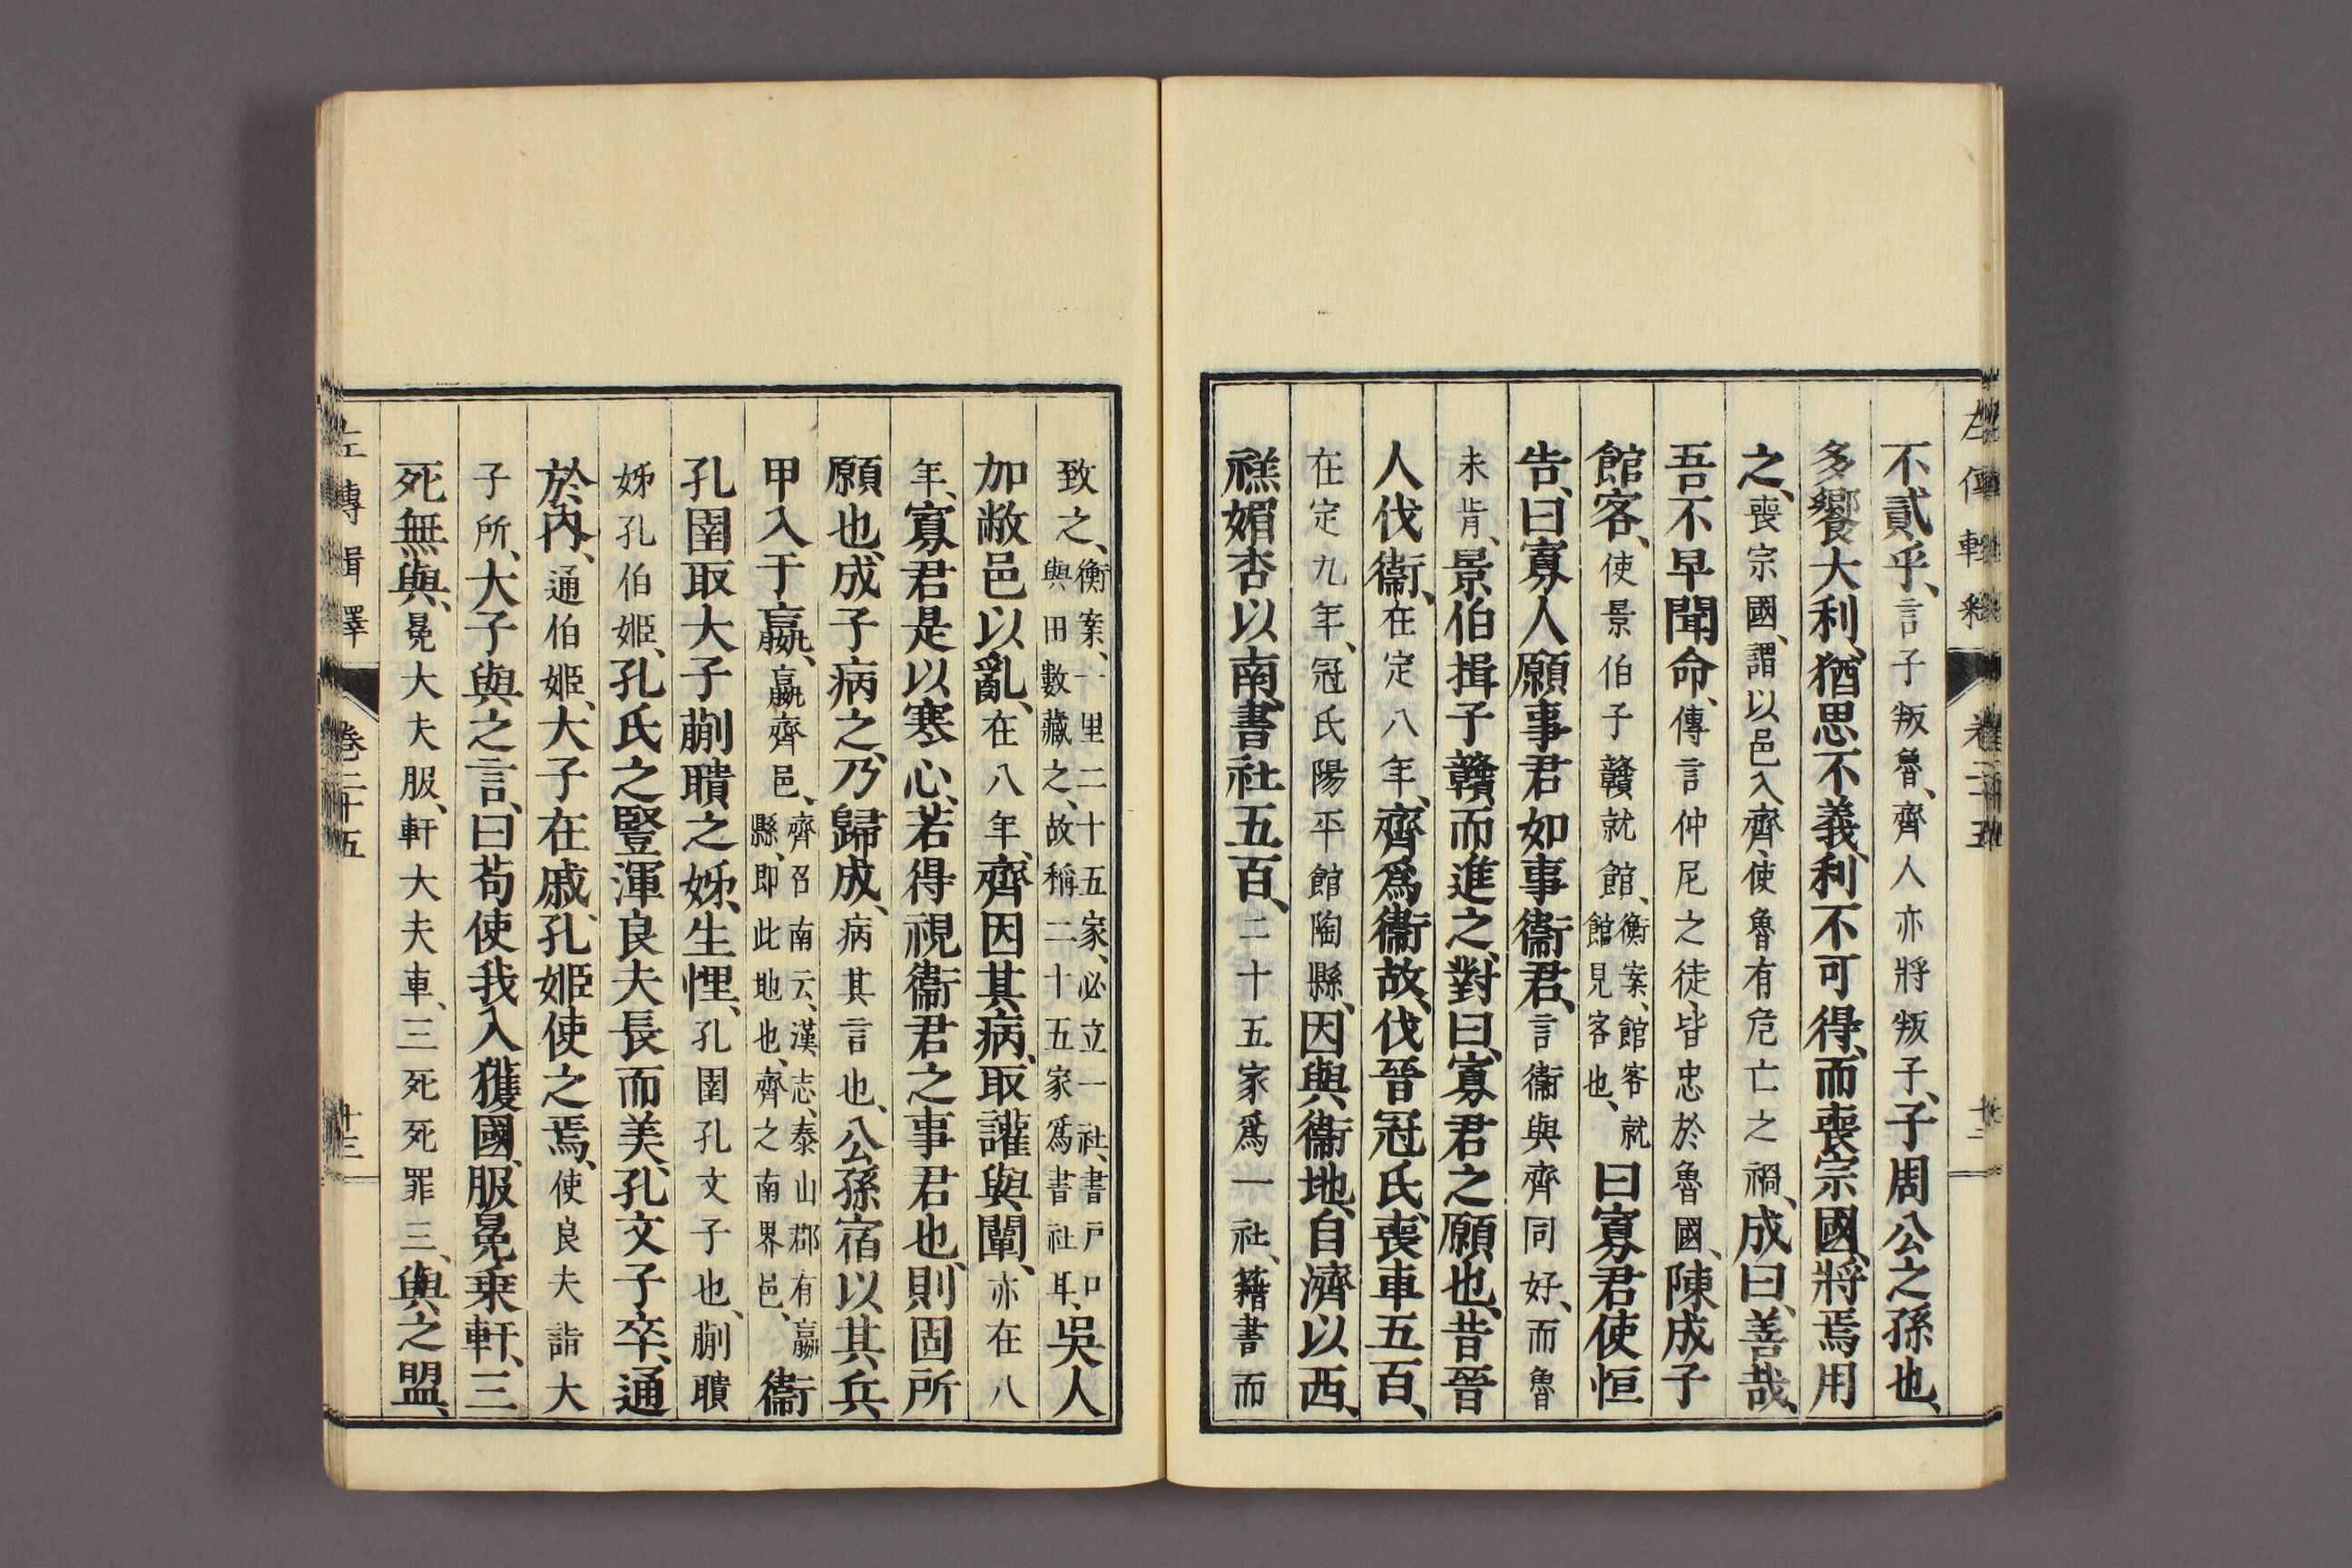 不貳乎、言子叛魯、齊人亦將叛子、子周公之孫也、
多饗大利、猶思不義、利不可得、而喪宗國、將焉用
之、喪宗國、謂以邑入齊、使魯有危亡之禍、成曰、善哉、
吾不早聞命、傳言仲尼之徒、皆忠於魯國、陳成子
館客、使景伯子贛就館、衡案、館客就館見客也、曰寡君使恒
告、曰寡人願事君如事衞君、言衞與齊同好、而魯
未肯、景伯揖子贛而進之、對曰、寡君之願也、昔晉
人伐衞、在定八年、齊爲衞故、伐晉冠氏、喪車五百、
在定九年、冠氏陽平館陶縣、因與衞地、自濟以西、
禚媚杏以南、書社五百、二十五家爲一社、籍書而
致之、衡案、一里二十五家、必立一社、書戶口與田數藏之、故稱二十五家爲書社耳、吳人
加敝邑以亂、在八年、齊因其病、取讙與闡、亦在八
年、寡君是以寒心、若得視衞君之事君也、則固所
願也、成子病之、乃歸成、病其言也、公孫宿以其兵
甲入于嬴、嬴齊邑、齊召南云、漢志、泰山郡有嬴縣、即此地也、齊之南界邑、衞
孔圉取大子蒯聵之姊、生悝、孔圉孔文子也、蒯聵
姊孔伯姬、孔氏之豎渾良夫長而美、孔文子卒、通
於內、通伯姬、大子在戚、孔姬使之焉、使良夫詣大
子所、大子與之言、曰苟使我入獲國、服冕乘軒、三
死無與、冕大夫服、軒大夫車、三死死罪三、與之盟、
左傳輯釋 卷二十五 十三